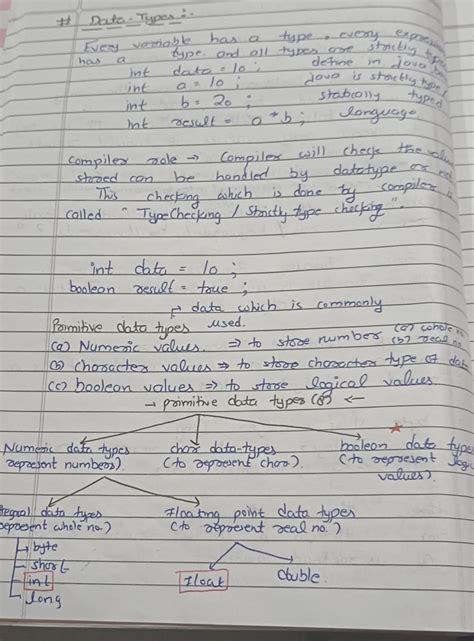 # Data-Types:-
Every variable has a type, every expre
has a type. and all types are strictly
int data = 10; define in java
int a = 10; java is strictly
int b = 20; statically typed
int result = a * b; language
compiler role → Compiler will check the
stored can be handled by datatype or
This checking which is done by compiler
called "TypeChecking / Strictly type checking".
int data = 10;
boolean result = true;
→ data which is commonly
Primitive data types used.
(a) Numeric values. ⇒ to store number (a) whole (b) real no.
(b) character values ⇒ to store character type of dat
(c) boolean values ⇒ to store logical values
→ primitive data types (8) ←
Numeric data types char data-types boolean data type
represent numbers). (to represent char). (to represent logi
values).
tegral data types Floating point data types
represent whole no.) (to represent real no.)
byte
short
int Float double
long